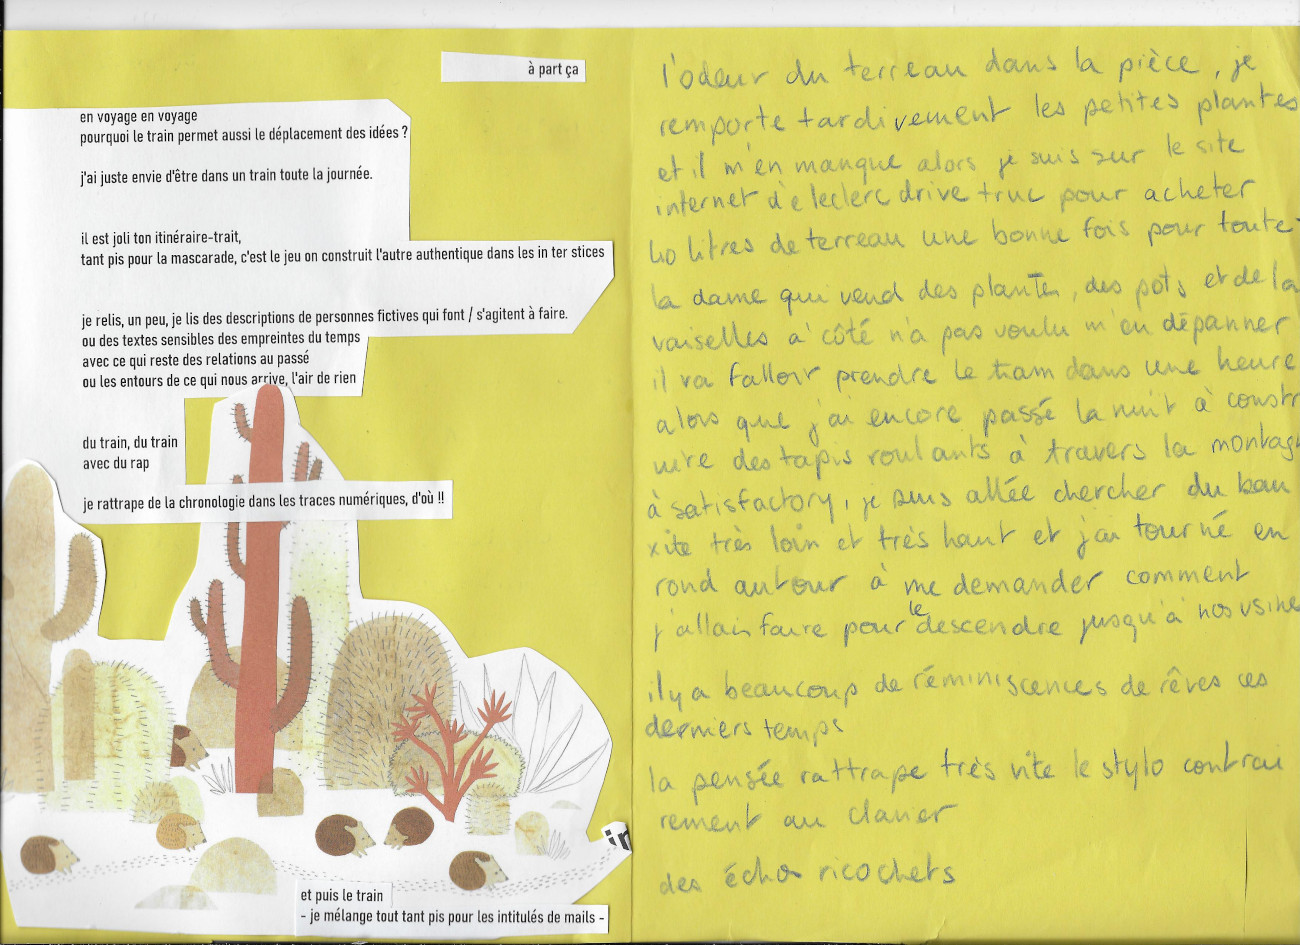 à part ça
en voyage en voyage
pourquoi le train permet aussi le déplacement des idées ?
j'ai juste envie d'être dans un train toute la journée.
il est joli ton itinéraire-trait,
tant pis pour la mascarade, c'est le jeu on construit l'autre authentique dans les in ter stices
je relis, un peu, je lis des descriptions de personnes fictives qui font / s'agitent à faire.
ou des textes sensibles des empreintes du temps
avec ce qui reste des relations au passé
ou les entours de ce qui nous arrive, l'air de rien
du train, du train
avec du rap
je rattrape de la chronologie dans les traces numériques, d'où !!
in
et puis le train
- je mélange tout tant pis pour les intitulés de mails -
l'odeur du terreau dans la pièce, je
remporte tardivement les petites plantes
et il m'en manque alors je suis sur le site
internet d'e leclerc drive truc pour acheter
40 litres de terreau une bonne fois pour toute
la dame qui vend des plantes, des pots et de la
vaiselles à côté n'a pas voulu m'en dépanner
il va falloir prendre le tram dans une heure
alors que j'ai encore passé la nuit à constr
uire des tapis roulants à travers la montag
à satisfactory, je suis allée chercher du bau
xite très loin et très haut et j'ai tourné en
rond autour à me demander comment
j'allais faire pour le descendre jusqu'à nos usine
il y a beaucoup de réminiscences de rêves ces
derniers temps
la pensée rattrape très vite le stylo contrai
rement au clavier
des écho ricochets